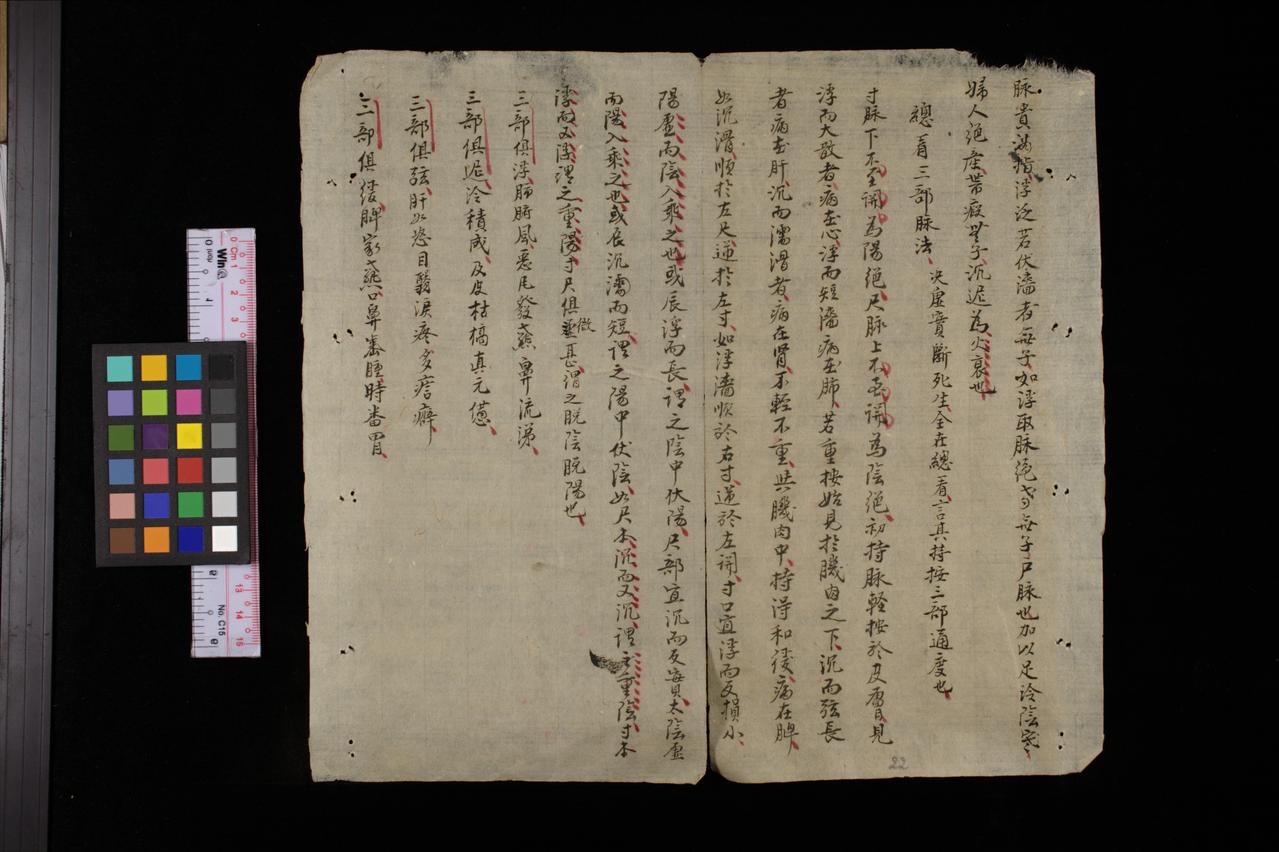 脉貴滿指浮泛若伏濇者無子如浮取脉絕亦無子尸脉也加以足冷陰寒
婦人絕產帶瘕無子沉迟為火衰也
總看三部脉法 决虛實斷死生全在總看言其持按三部通度也
寸脉下不至関為陽絕尺脉上不至関為陰絕初持脉輕按於皮膚見
浮而大散者病在心浮而短濇病在肺若重按始見於肌肉之下沉而弦長
者病在肝沉而濡滑者病在肾不輕不重與肌肉中持得和緩病在脾
如沉滑順於左尺逆於左寸如浮濇順於右寸逆於左関寸口宜浮而反損小
陽虛而陰入乘之也或辰浮而長謂之陰中伏陽尺部宜沉而反實太陰虛
而陽入乘之也或辰沉濡而短謂之陽中伏陰如尺本沉而又沉謂之重陰寸本
浮而又浮謂之重陽寸尺俱微甚謂之脱陰脱陽也
三部俱浮肺腑風惡尾發熱鼻流涕
三部俱迟冷積成及皮枯槁真元憊
三部俱弦肝火怒目翳淚疼多痞癖
三部俱緩脾家熱口鼻腫時番胃
22